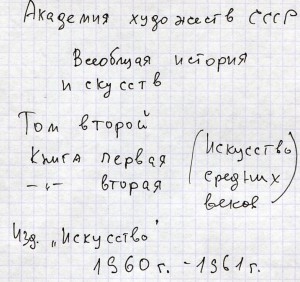 Академия художеств СССР
Всеобщая история
искусств
Том второй
Книга первая
-„- вторая
(Искусство
средних
веков)
Изд. „Искусство"
1960г. - 1961г.